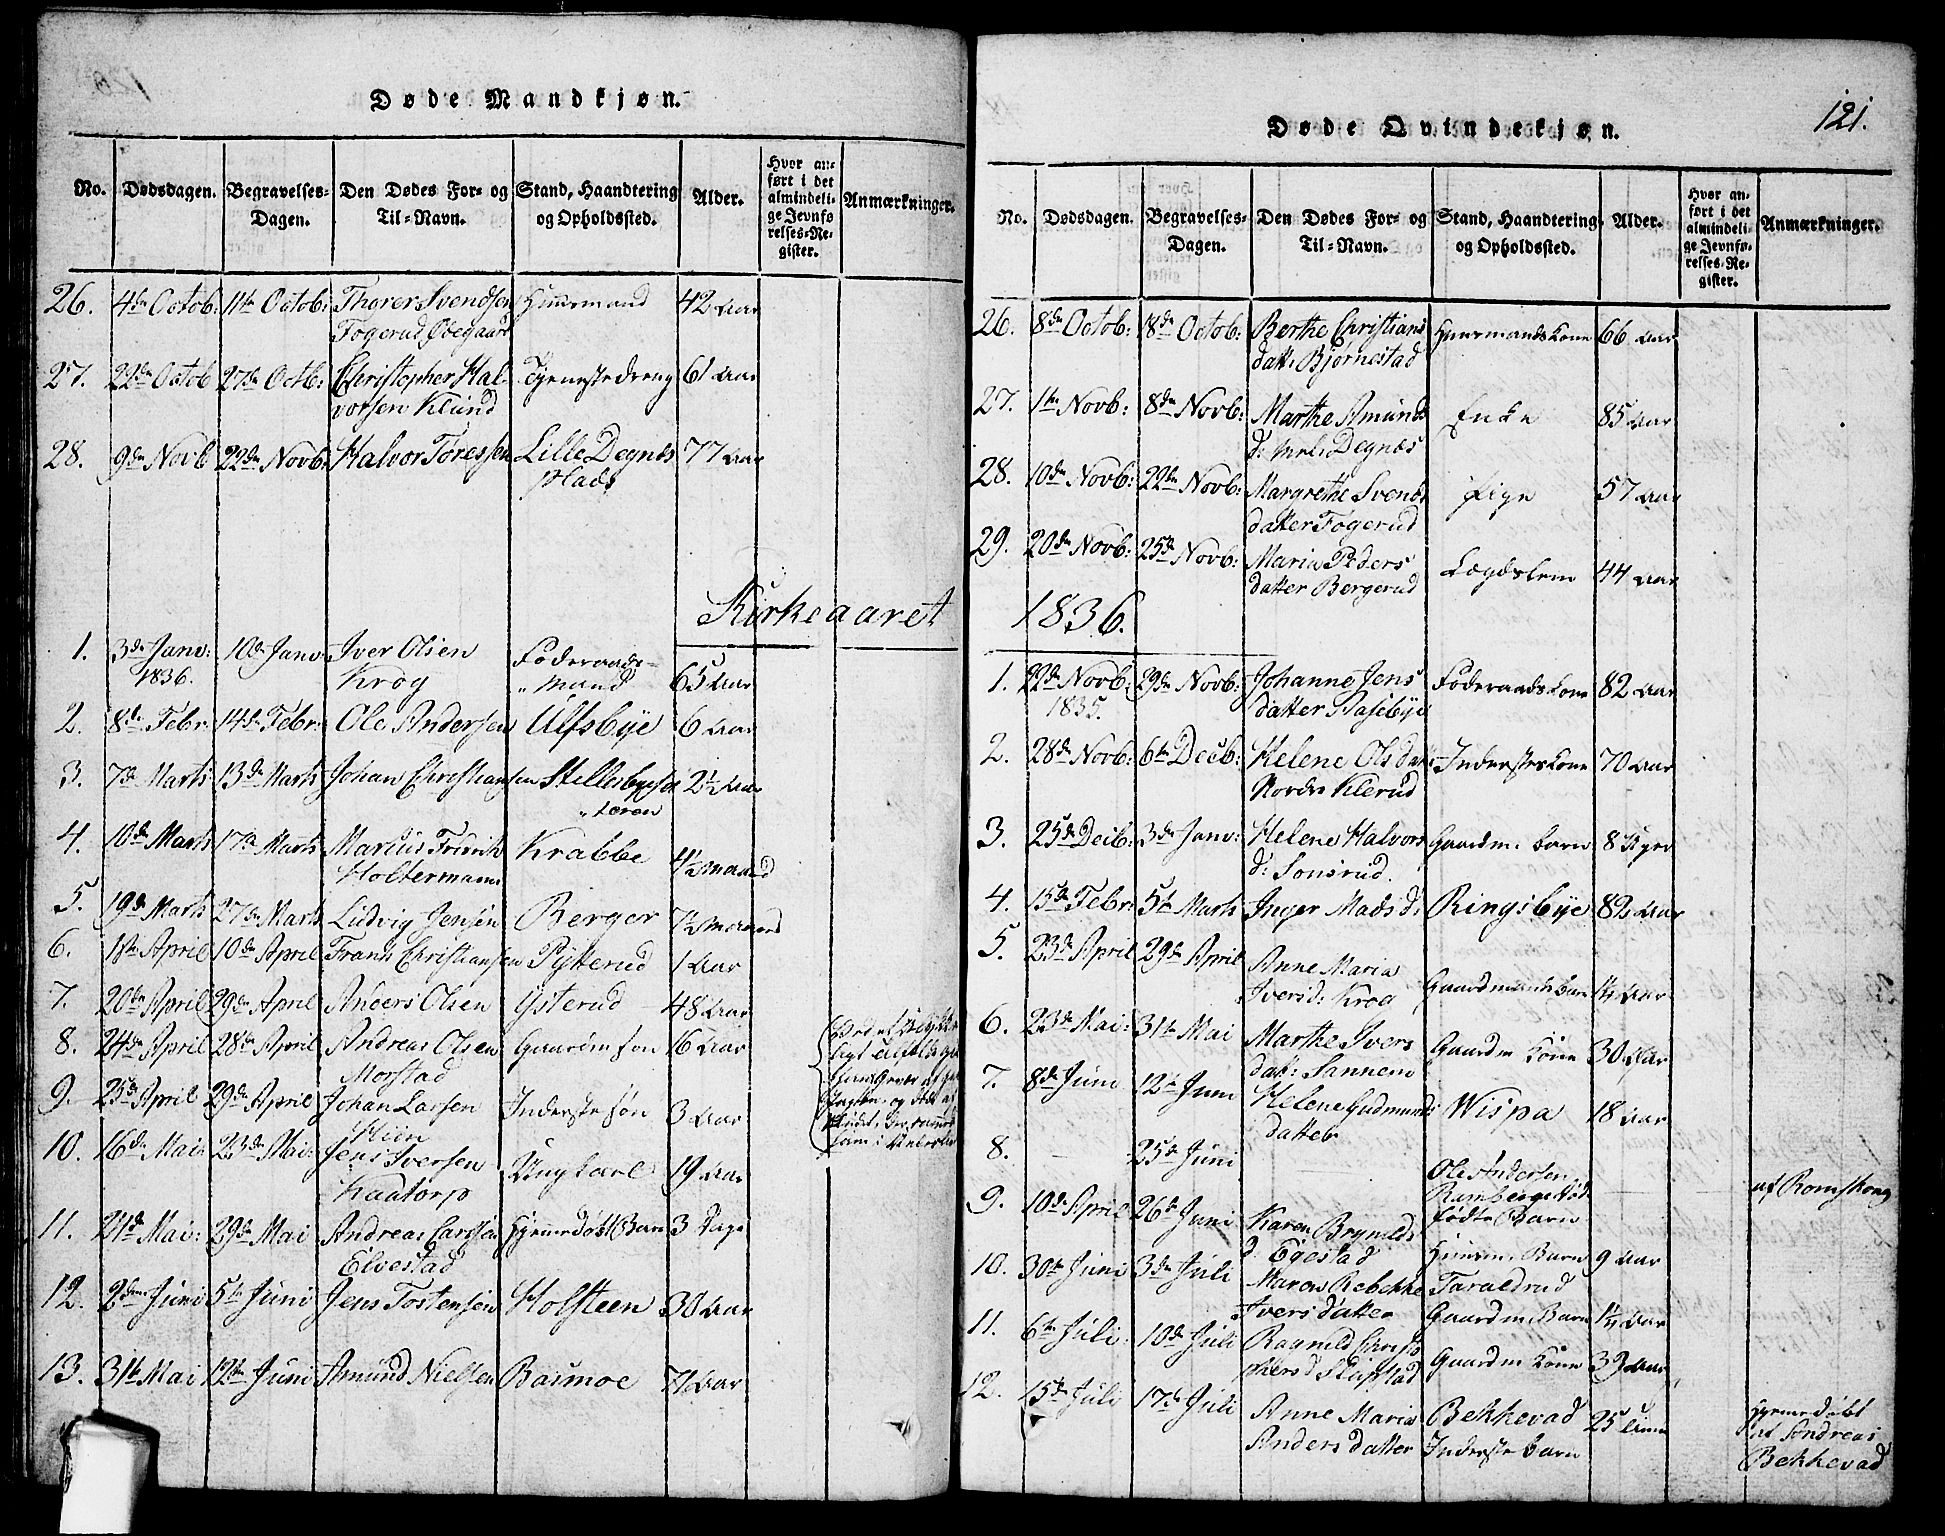 Døde Mandkjøn.
No. Dødsdagen. Begravelses-Dagen. Den Dødes For- og Til-Navn. Stand, Haandtering og Opholdssted. Alder. Hvor anført i det almindelige Jevnførelses-Register. Anmærkninger.
26. 4de Octob: 11te Octob: Thorer Svendsen Huusmand 42 Aar
Fogerud Ødegaard
27. 22de Octob 27de Octb: Christopher Hal- Tjenestedreng 61 Aar
vorsen Klund
28. 9de Novb 22de Novb: Halvor Tøressen Lille Degnæs 77 Aar
Plads
Kirkeaaret
1. 3de Janv: 10de Janv: Iver Olsen Føderaads-
1836. Krog mand 65 Aar
2. 8de Febr: 14de Febr: Ole Andersen Ulfsbye 6 Aar
3. 7de Marts 13de Marts Johan Christiansen 2½ Aar
4. 10de Marts 17de Marts Marius Fridrich Krabbe 4½ Maaned
Holtermann
5. 19de Marts 27de Marts Ludvig Jensen Berger 7½ Maaned
6. 1ste April 10de April Frants Christiansen Pytterud 1 Aar
7. 20de April 29de April Anders Olsen Ysterud 48 Aar
8. 24de April 28de April Andreas Olsen Gaardm søn 16 Aar
Morstad
9. 25de April 29de April Johan Larsen Inderste søn 3 Aar
10. 16de Mai 23de Mai: Jens Iversen Ungkarl 19 Aar
Kaatorp
11. 21de Mai: 29de Mai Andreas Larssen Hjemmedøbt Barn 3 Dage
Elvestad
12. 2den Juni 5te Juni Jens Tostensen Holsteen 30 Aar
13. 31te Mai 12te Juni Amund Nielsen Basmoe 71 Aar
121.
Døde Qvindekjøn.
No. Dødsdagen. Begravelses-Dagen. Den Dødes For- og Til-Navn. Stand, Haandtering og Opholdssted. Alder. Hvor anført i det almindelige Jevnførelses-Register. Anmærkninger.
26. 8de Octob: 18de Octob: Berthe Christians Huusmandskone 66 Aar
datt: Bjørnestad
27. 1te Novb: 8de Novb: Marthe Amunds Enke 85 Aar
d: Degnæs
28. 10de Novb: 22de Novb: Margrethe Svends Pige 57 Aar
datter Fogerud
29. 20de Novb: 25de Novb: Maria Peders Lægdslem 44 Aar
datter Bergerud
1836.
1. 22de Novb: 29de Novb: Johanne Jens Føderaadskone 82 Aar
1835. datter Aasebye
2. 28de Novb: 6te Decb: Helene Olsdatt Inderstekone 70 Aar
Nordre Klerud
3. 25de Decb: 3de Janv: Helene Halvors Gaardm: barn 8 Uger
d: Sonsrud.
4. 15de Febr: 5te Marts Inger Mads d: Ringsbye 82 Aar
5. 23de April 29de April Anne Maria
Ivers d: Krog Gaardmands barn 1½ Aar
6. 23de Mai: 31te Mai Marthe Ivers Gaardm kone 30 Aar
datt: Sannem
7. 8de Juni 12te Juni Helene Gudmunds Wispa 18 Aar
datter
8. — 25de Juni Ole Andersen
Ramberget død- af Romskong
fødte Barn
9. 10de April 26de Juni Karen Brynilds
d: Egestad Huusm: Barn 9 Aar
10. 30te Juni 3de Juli Maren Rebekke Taraldrud
Iversdatter Gaardm: Barn 1½ Aar
11. 6te Juli: 10de Juli Ragnild Christo
phers d Gaardm kone 39 Aar
12. 15de Juli 17de Juli Anne Maria Bekkevad 25
Anders datter Inderste barn
Hjemmedøbt
af Andreas
Bekkevad